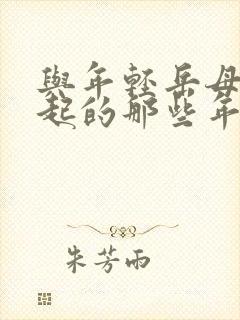 與年輕岳母
起的那些年
朱芳雨